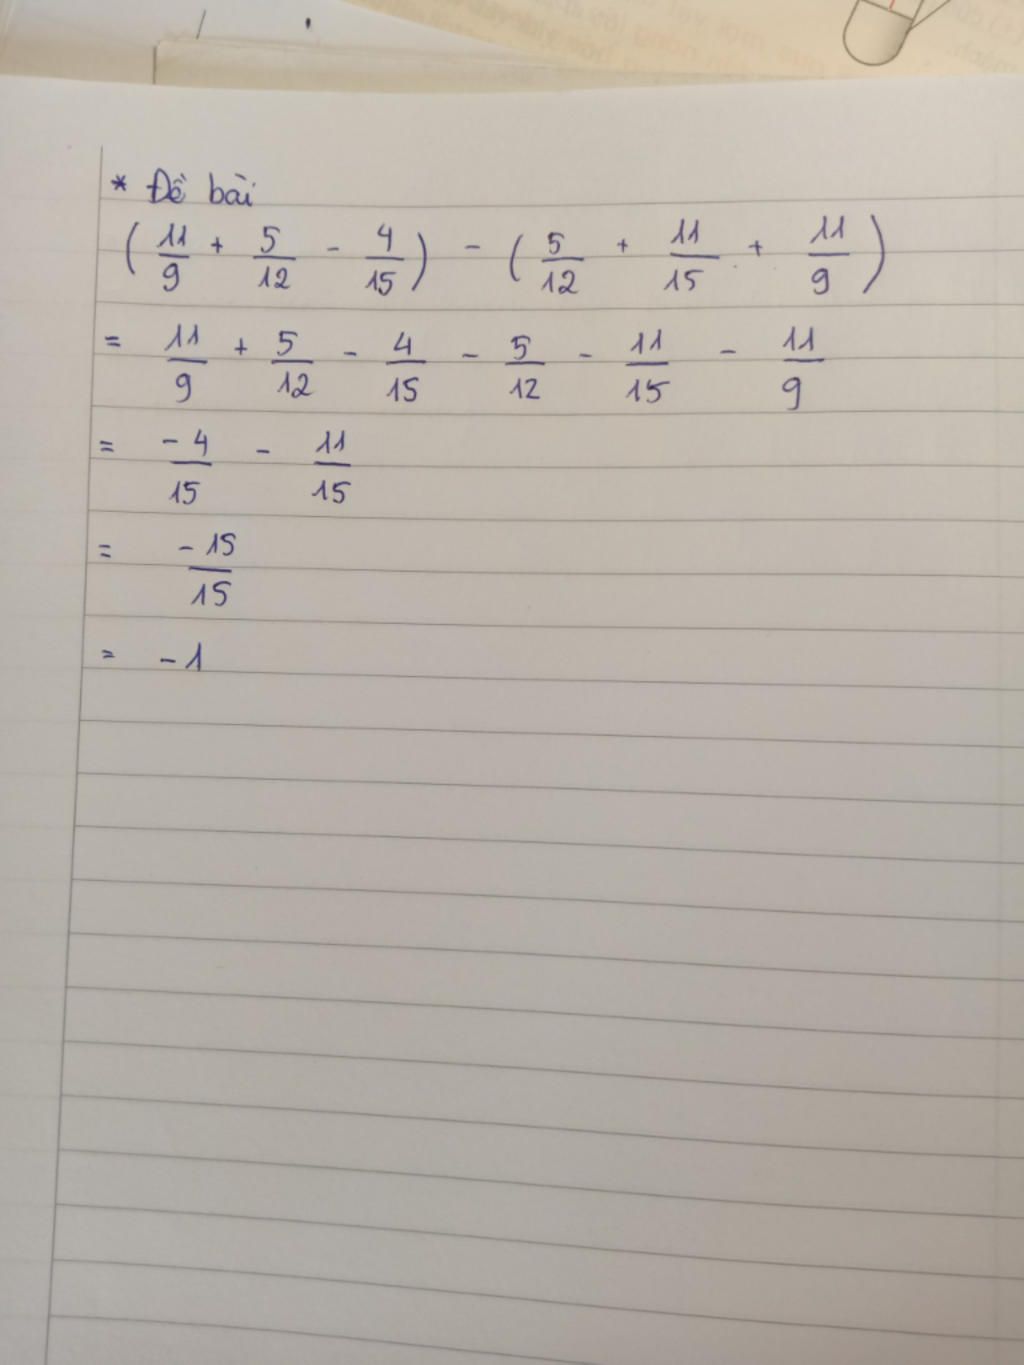 * Đề bài
(11/9 + 5/12 - 4/15) - (5/12 + 11/15 + 11/9)
= 11/9 + 5/12 - 4/15 - 5/12 - 11/15 - 11/9
= -4/15 - 11/15
= -15/15
= -1